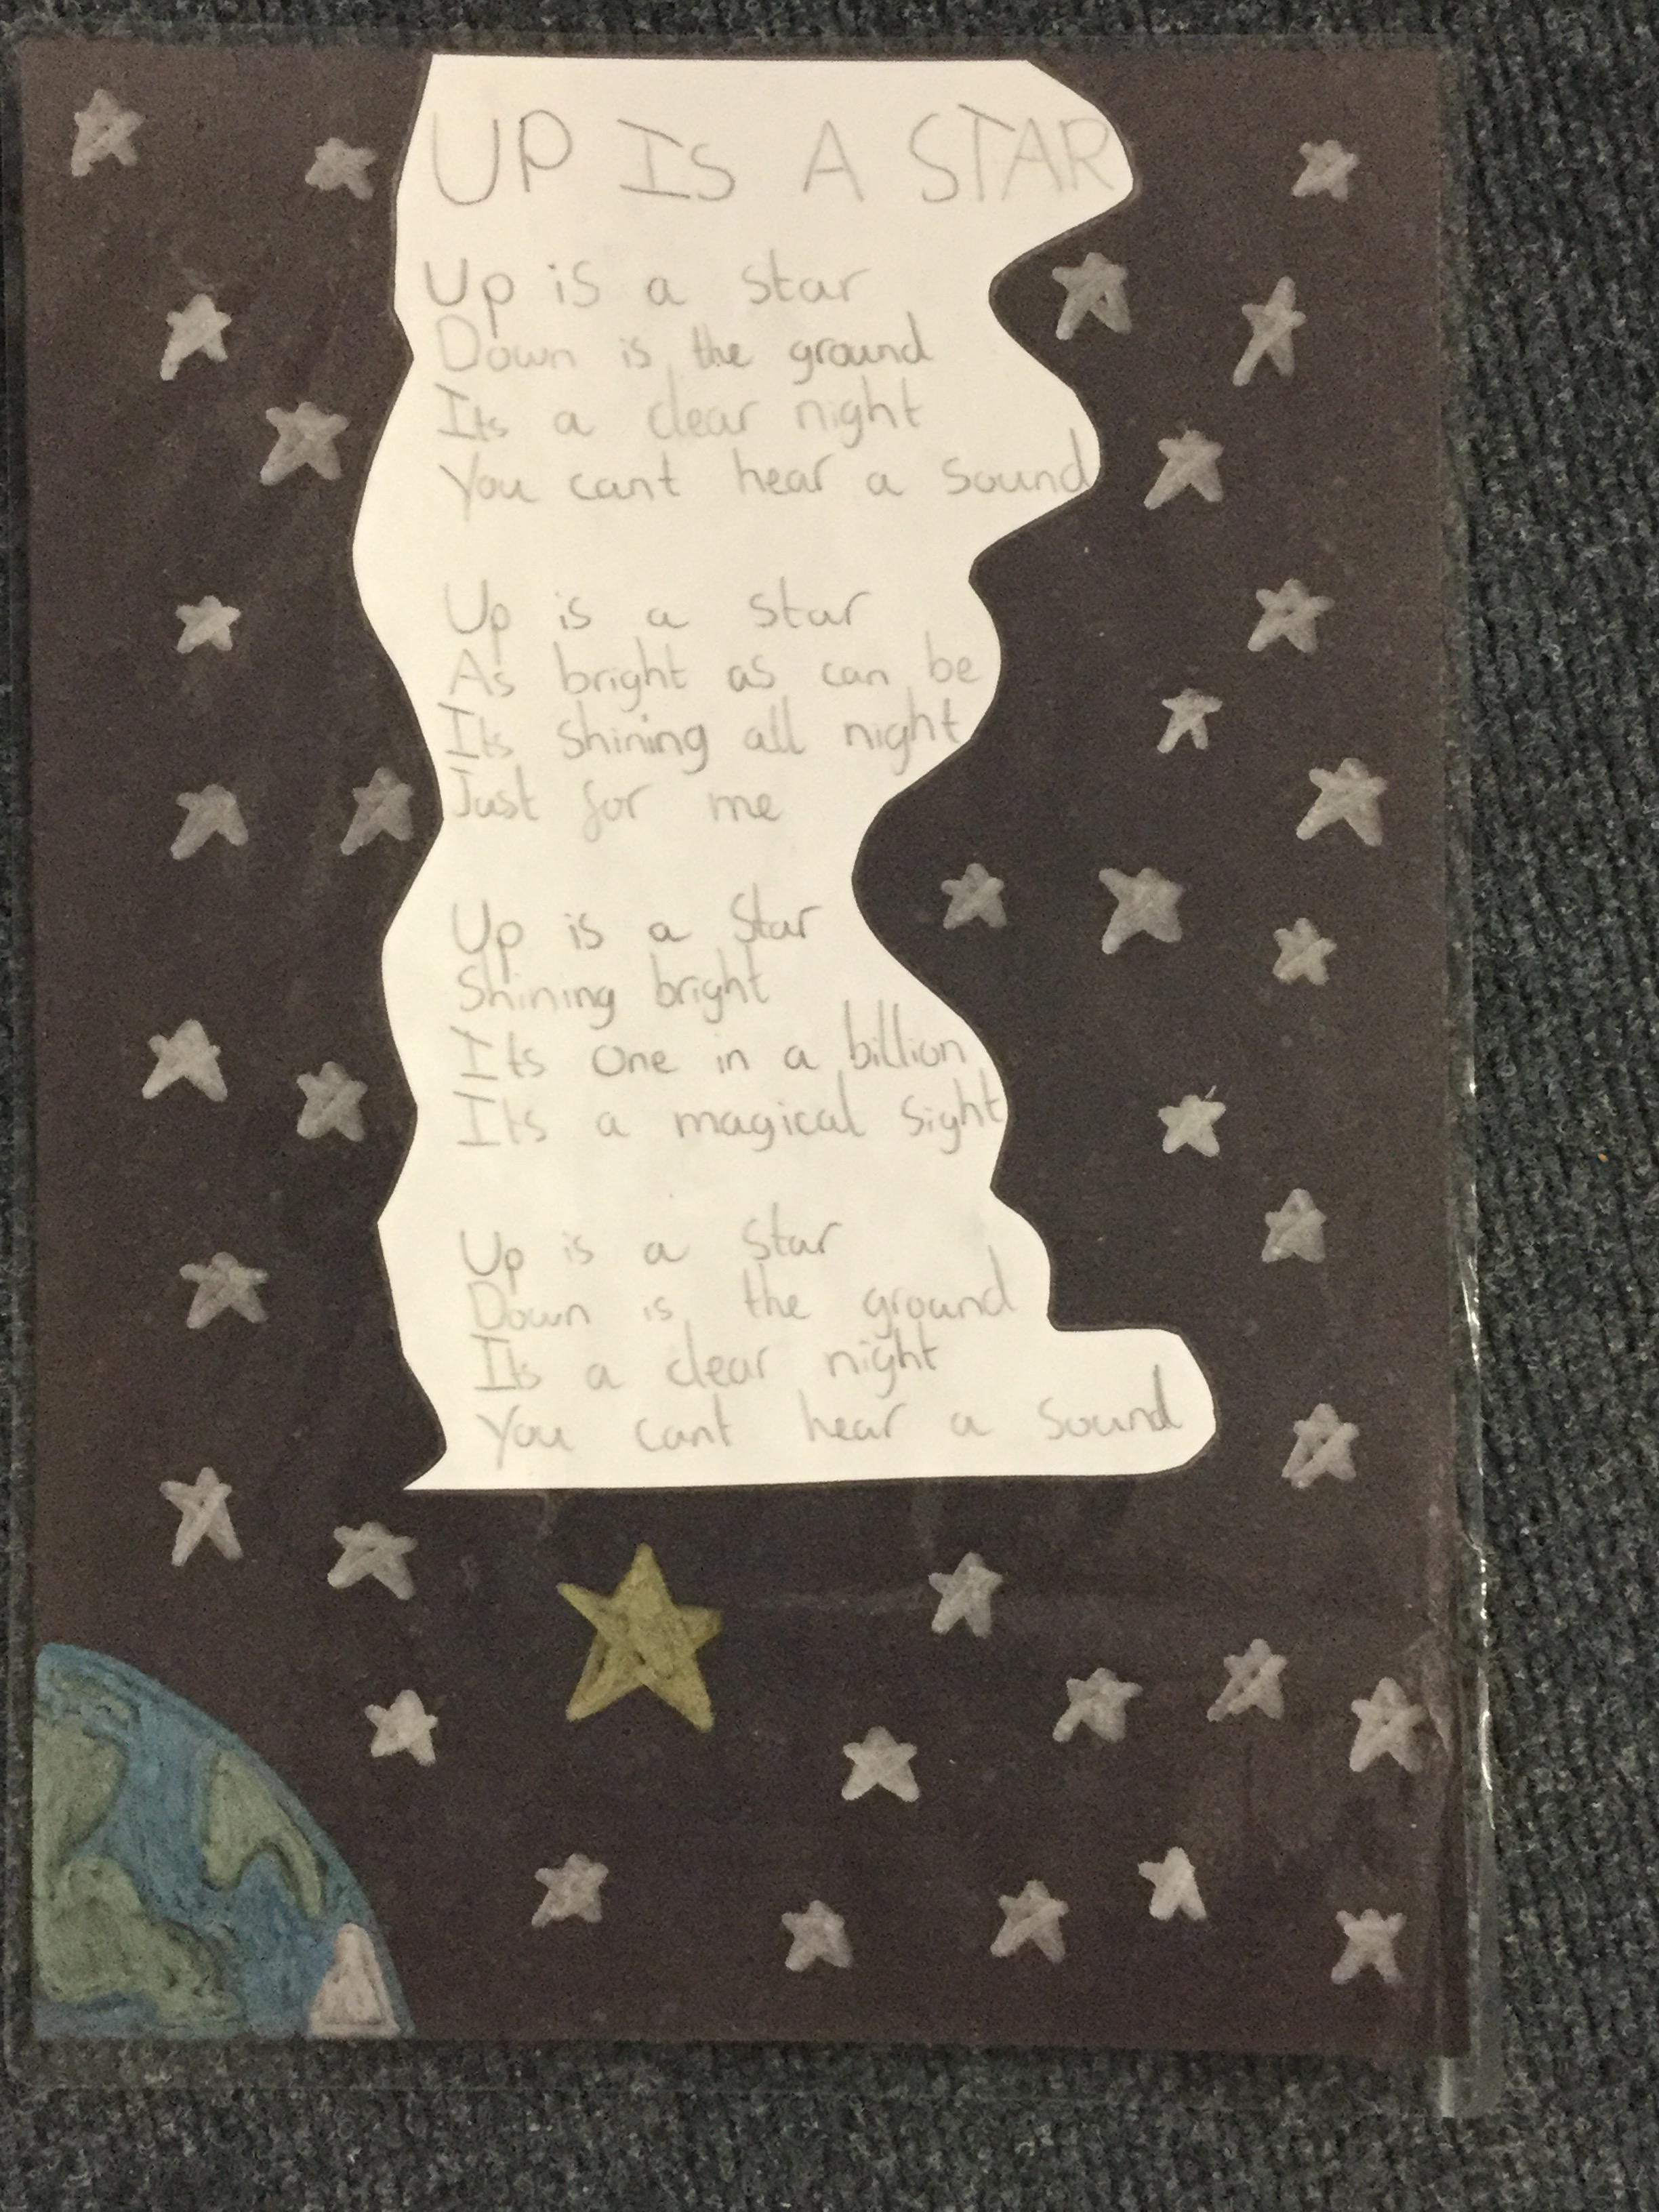 UP IS A STAR
Up is a star
Down is the ground
Its a clear night
You cant hear a sound
Up is a star
As bright as can be
Its shining all night
Just for me
Up is a star
Shining bright
Its one in a billion
Its a magical sight
Up is a star
Down is the ground
Its a clear night
You cant hear a sound